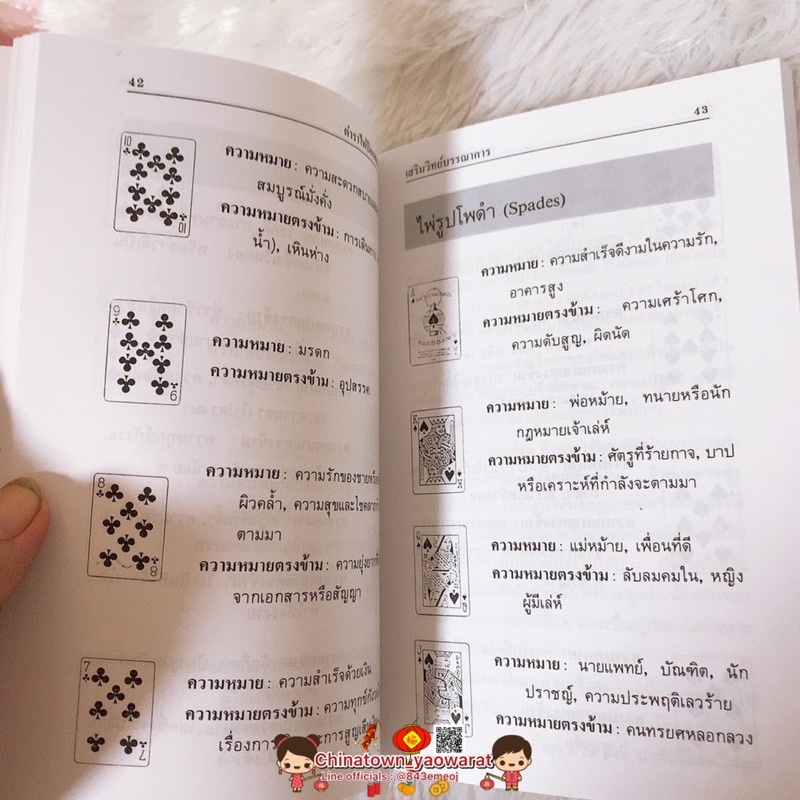 42
ตำราไพ่
10
ความหมาย : ความสะดวกสบาย
สมบูรณ์มั่งคั่ง
ความหมายตรงข้าม : การเดินทาง
น้ำ), เหินห่าง
10
9
ความหมาย : มรดก
ความหมายตรงข้าม : อุปสรรค
9
8
ความหมาย : ความรักของชาย
ผิวคล้ำ, ความสุขและโชคลาภ
ตามมา
ความหมายตรงข้าม : ความยุ่งยาก
จากเอกสารหรือสัญญา
8
7
ความหมาย : ความสำเร็จด้วยเงิน
ความหมายตรงข้าม : ความทุกข์
เรื่องการ
7
43
เสริมวิทย์บรรณาคาร
ไพ่รูปโพดำ (Spades)
ความหมาย : ความสำเร็จดีงามในความรัก,
อาคารสูง
ความหมายตรงข้าม : ความเศร้าโศก,
ความดับสูญ, ผิดนัด
A
K
ความหมาย : พ่อหม้าย, ทนายหรือนัก
กฎหมายเจ้าเล่ห์
ความหมายตรงข้าม : ศัตรูที่ร้ายกาจ, บาป
หรือเคราะห์ที่กำลังจะตามมา
Q
ความหมาย : แม่หม้าย, เพื่อนที่ดี
ความหมายตรงข้าม : ลับลมคมใน, หญิง
ผู้มีเล่ห์
J
ความหมาย : นายแพทย์, บัณฑิต, นัก
ปราชญ์, ความประพฤติเลวร้าย
ความหมายตรงข้าม : คนทรยศหลอกลวง
Chinatown_yaowarat
Line officials : @843emeoj